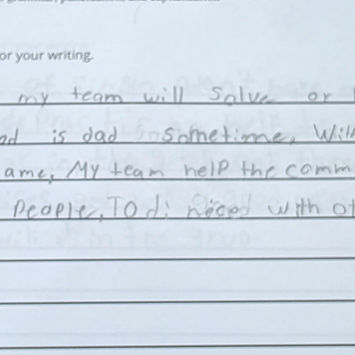 or your writing.
my team will Solve or
is dad Sometime, Will
ame, My team help the comm
People, TO di need with ot